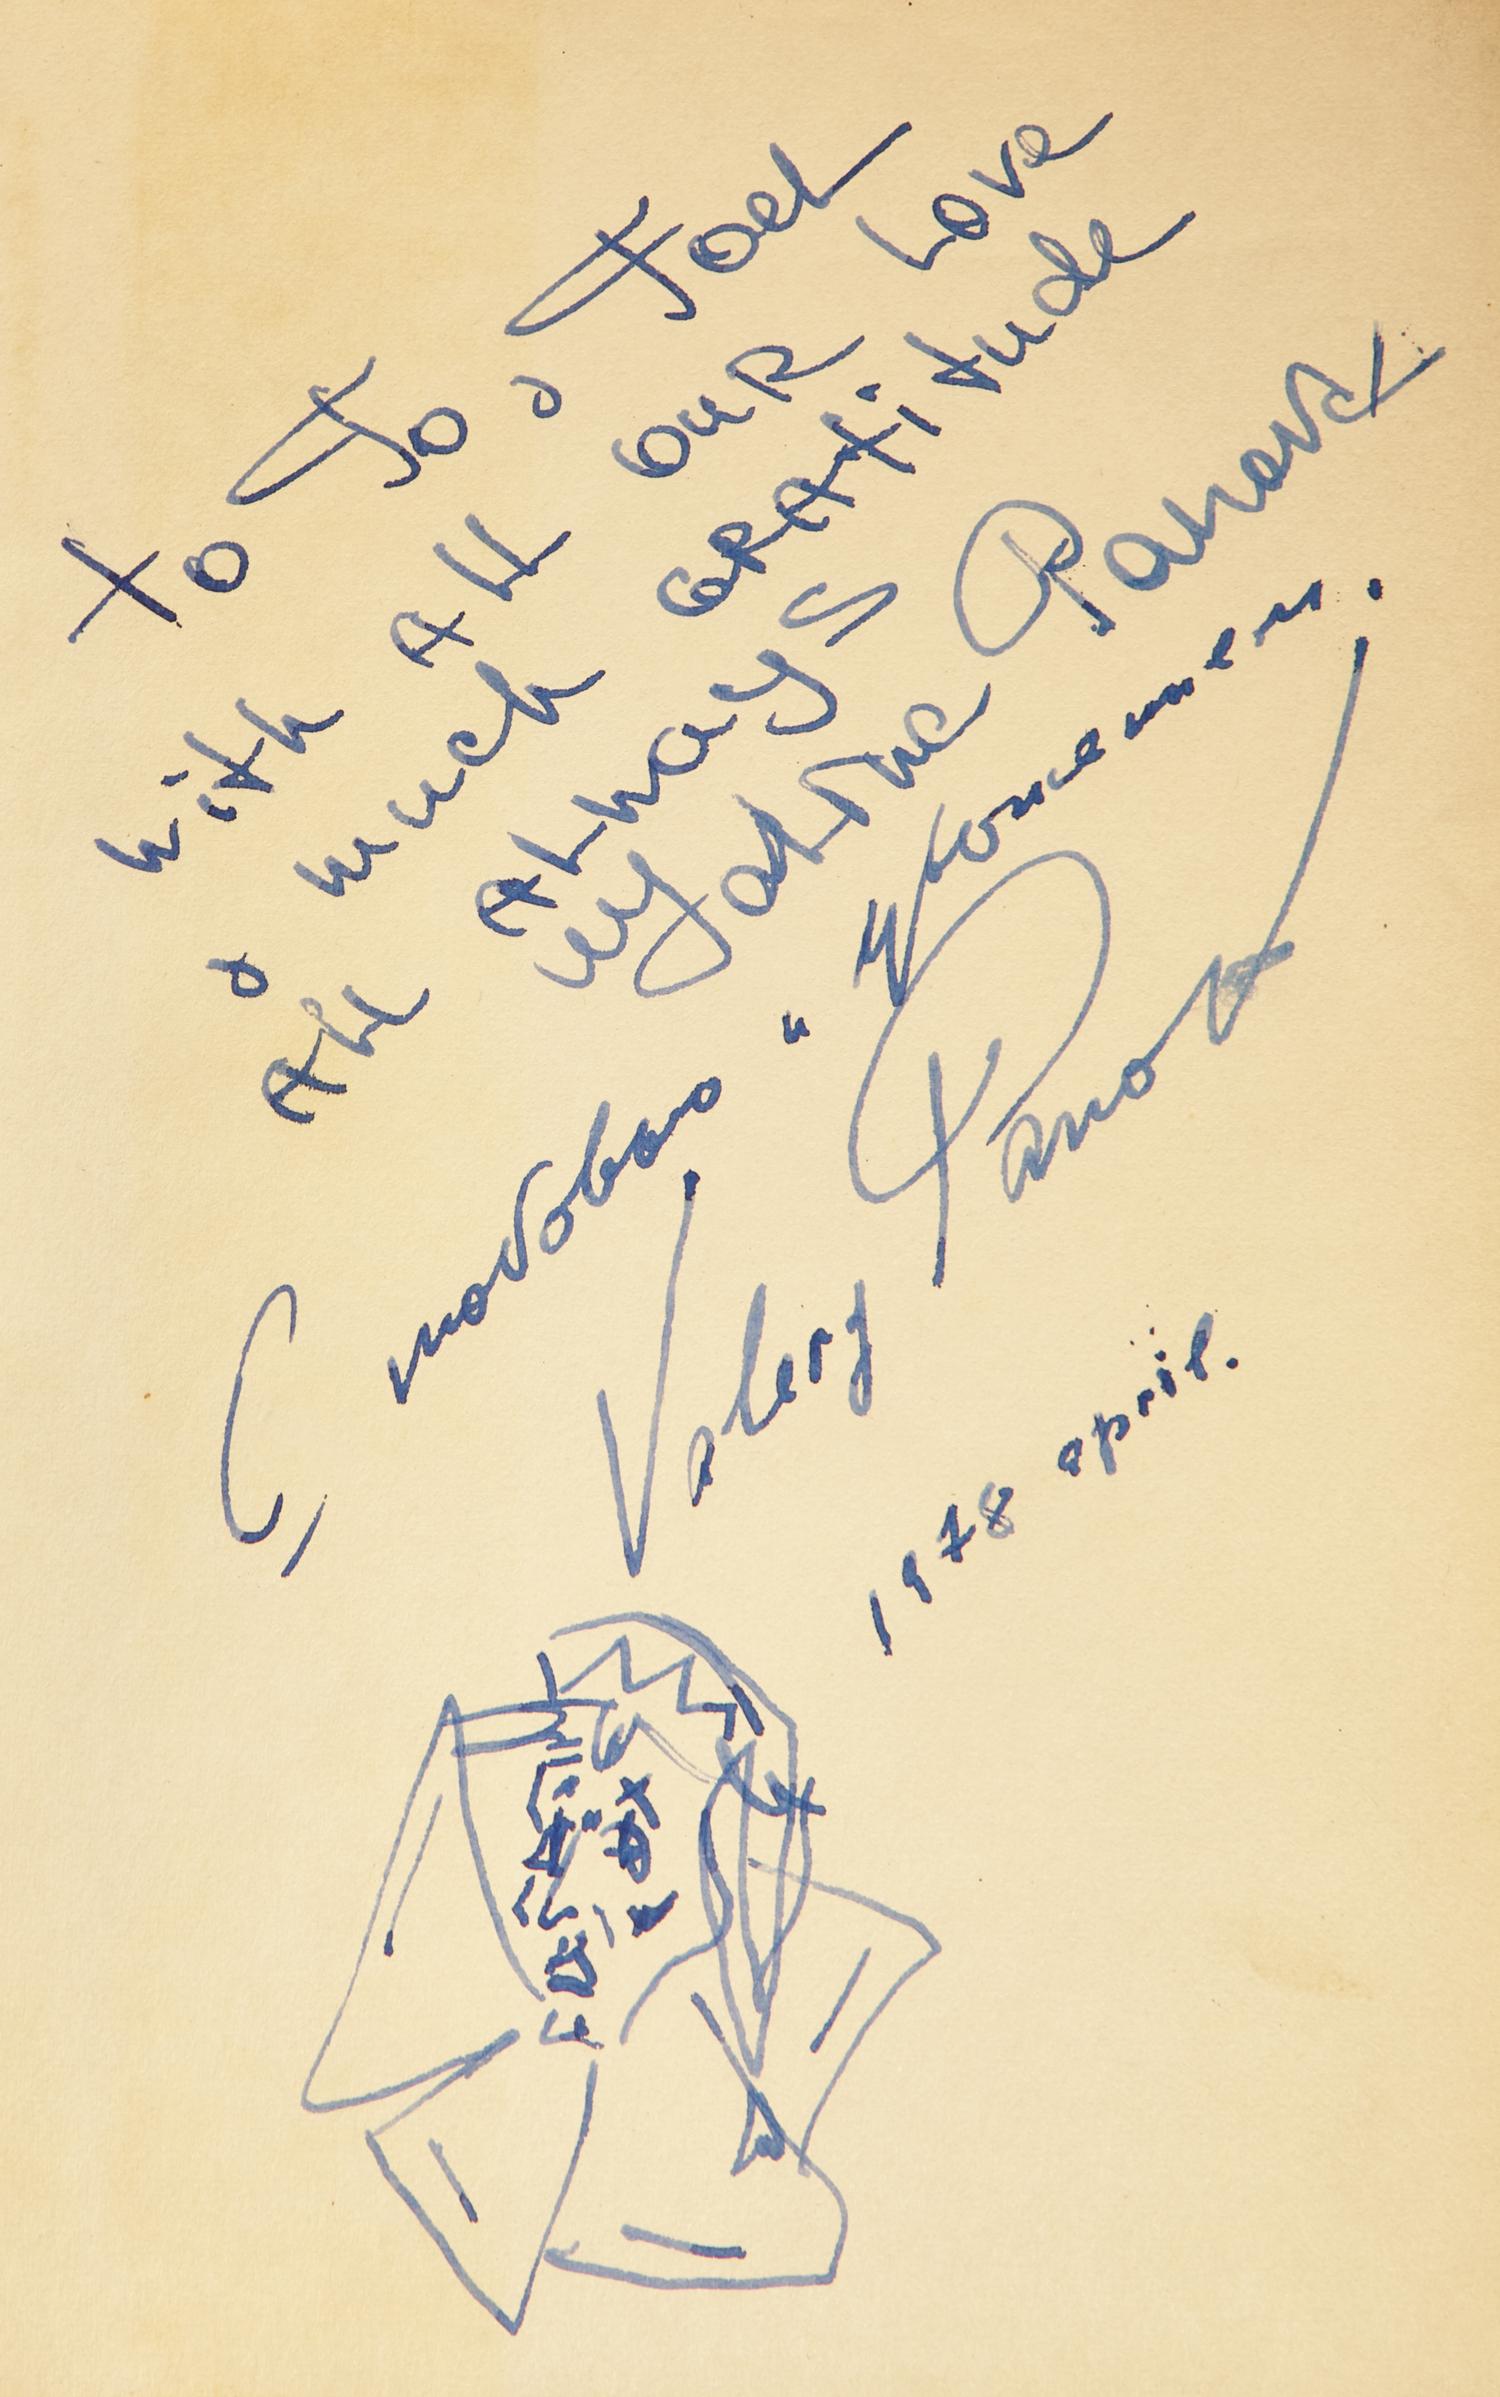 to Jo & Joel
with ALL our Love
& much GRATitude
ALL ALWAYS
Galina Panova
С любовью и
Valery Panov
1978 april.